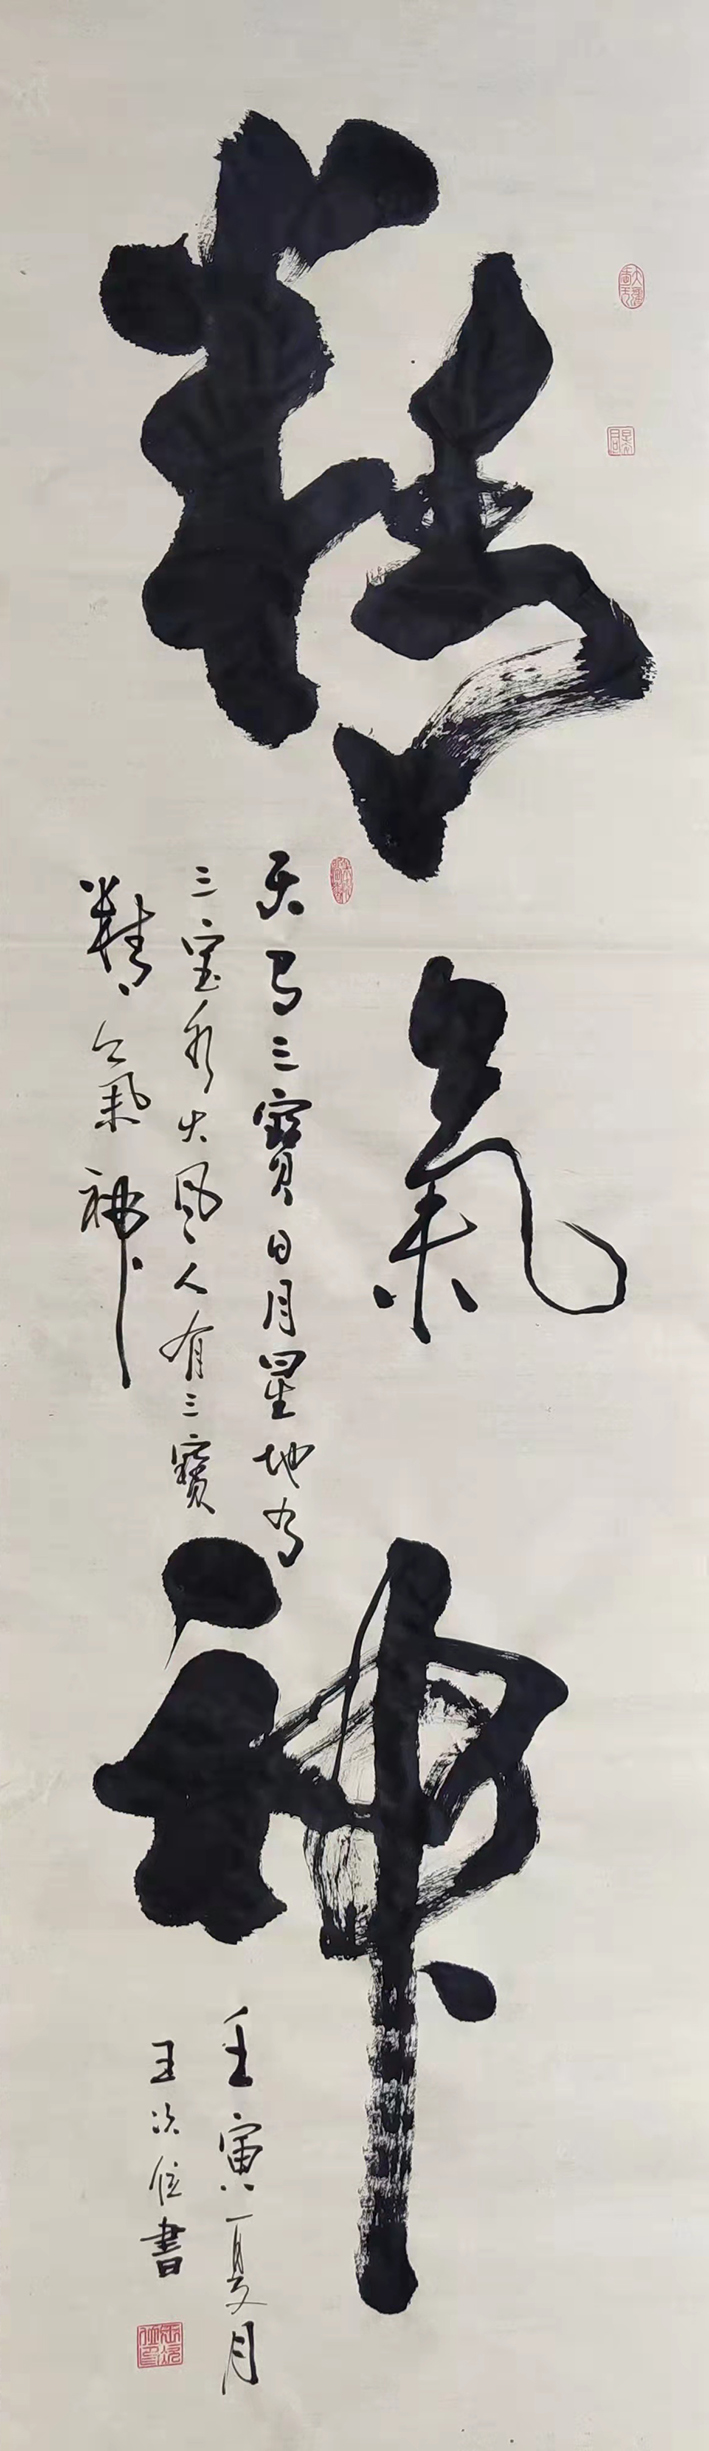 精氣神
天有三寶日月星地有
三宝水火风人有三寳
精氣神
壬寅夏月
王次位書